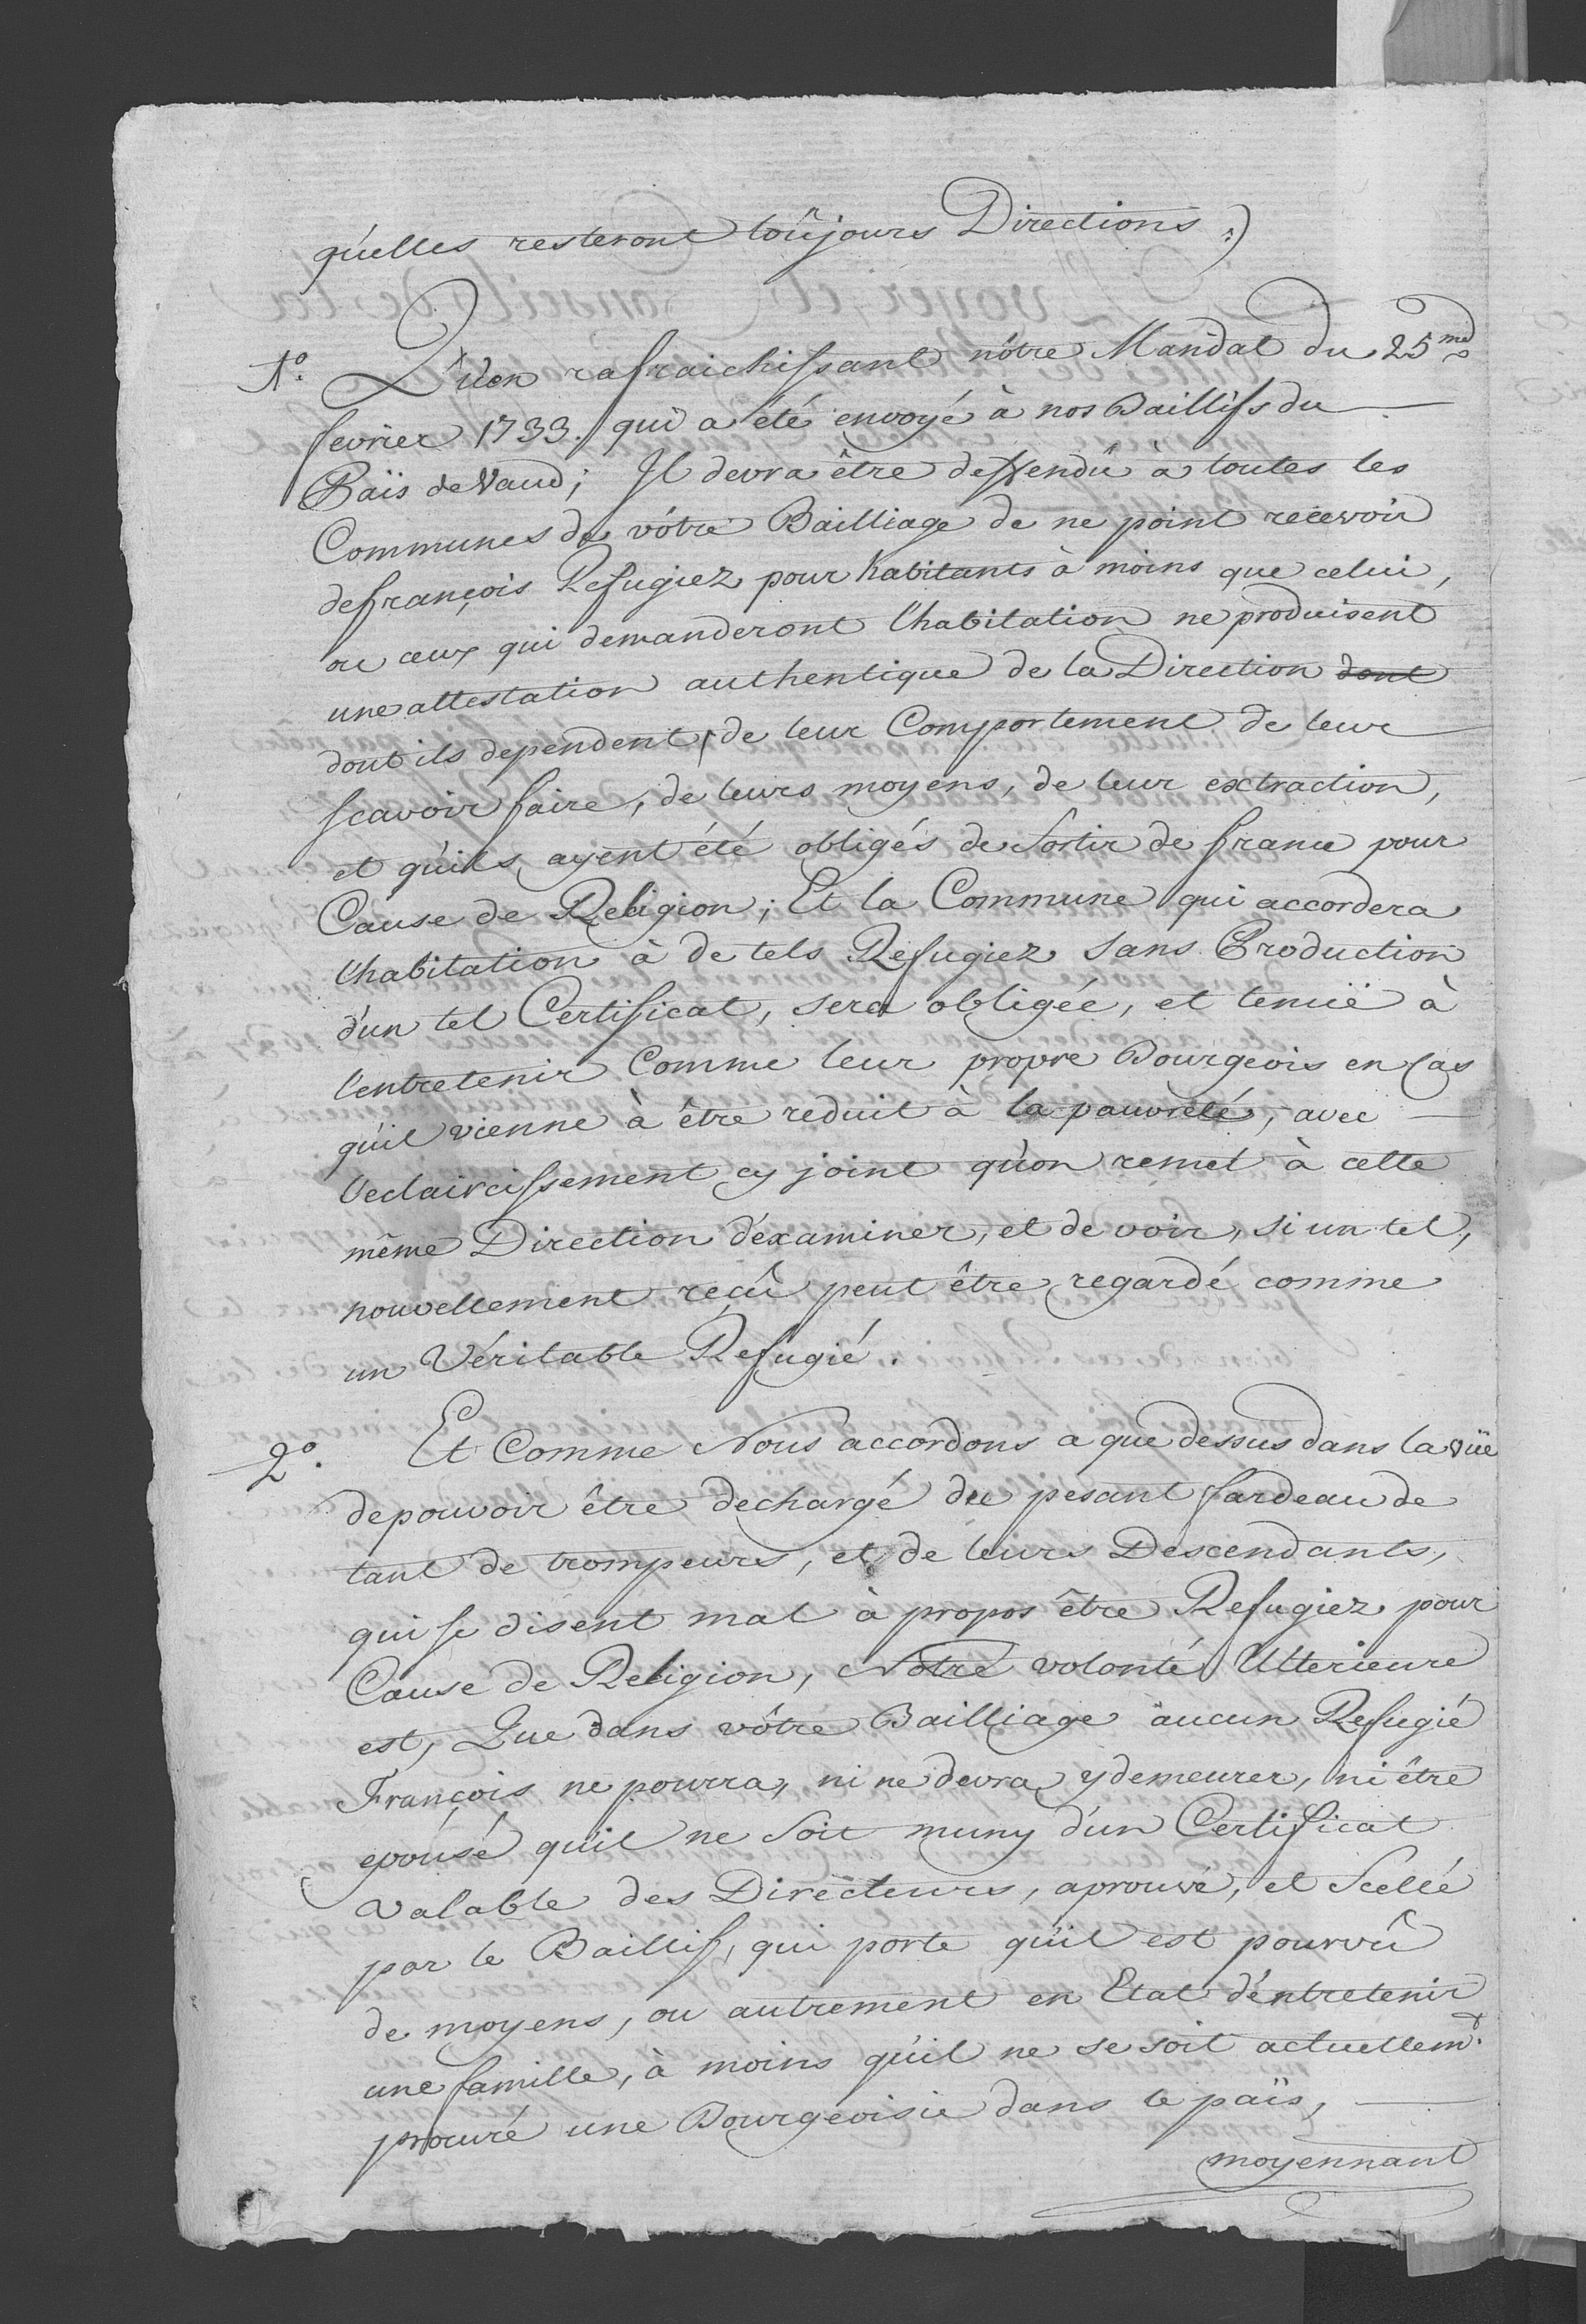 qu'elles resteront toûjours Directions :)
1.° Qu'en rafraichissant nôtre Mandat du 25.me
fevrier 1733. qui a été envoyé à nos Baillifs du
Païs de Vaud; Il devra être deffendu à toutes les
Communes de vôtre Bailliage de ne point recevoir
de françois Refugiez pour habitants à moins que celui,
ou ceux qui demanderont l'habitation ne produisent
une attestation authentique de la Direction dont
dont ils dependent, de leur Comportement de leur
scavoir faire, de leurs moyens, de leur extraction,
et qu'ils ayent été obligés de Sortir de france pour
Cause de Religion; Et la Commune qui accordera
l'habitation à de tels Refugiez sans Production
d'un tel Certificat, sera obligée, et tenuë à
l'entretenir Comme leur propre Bourgeois en Cas
qu'il vienne à être reduit à la pauvreté, avec
l'eclaircissement cy joint qu'on remet à cette
même Direction d'examiner, et de voir, si un tel,
nouvellement reçû peut être regardé comme
un Véritable Refugié.
2.° Et Comme Nous accordons a que dessus dans la vüe
de pouvoir être dechargé du pesant fardeau de
tant de trompeurs, et de leurs Descendants,
qui se disent mal à propos être Refugiez pour
Cause de Religion, Nôtre volonté Ulterieure
est, Que dans vôtre Bailliage aucun Refugié
François ne pourra, ni ne devra y demeurer, ni être
epousé qu'il ne Soit muny d'un Certificat
valable des Directeurs, aprouvé, et Scellé
par le Baillif, qui porte qu'il est pourvû
de moyens, ou autrement en Etat d'entretenir
une famille, à moins qu'il ne se soit actuellem.t
procuré une Bourgeoisie dans le païs,
moyennant